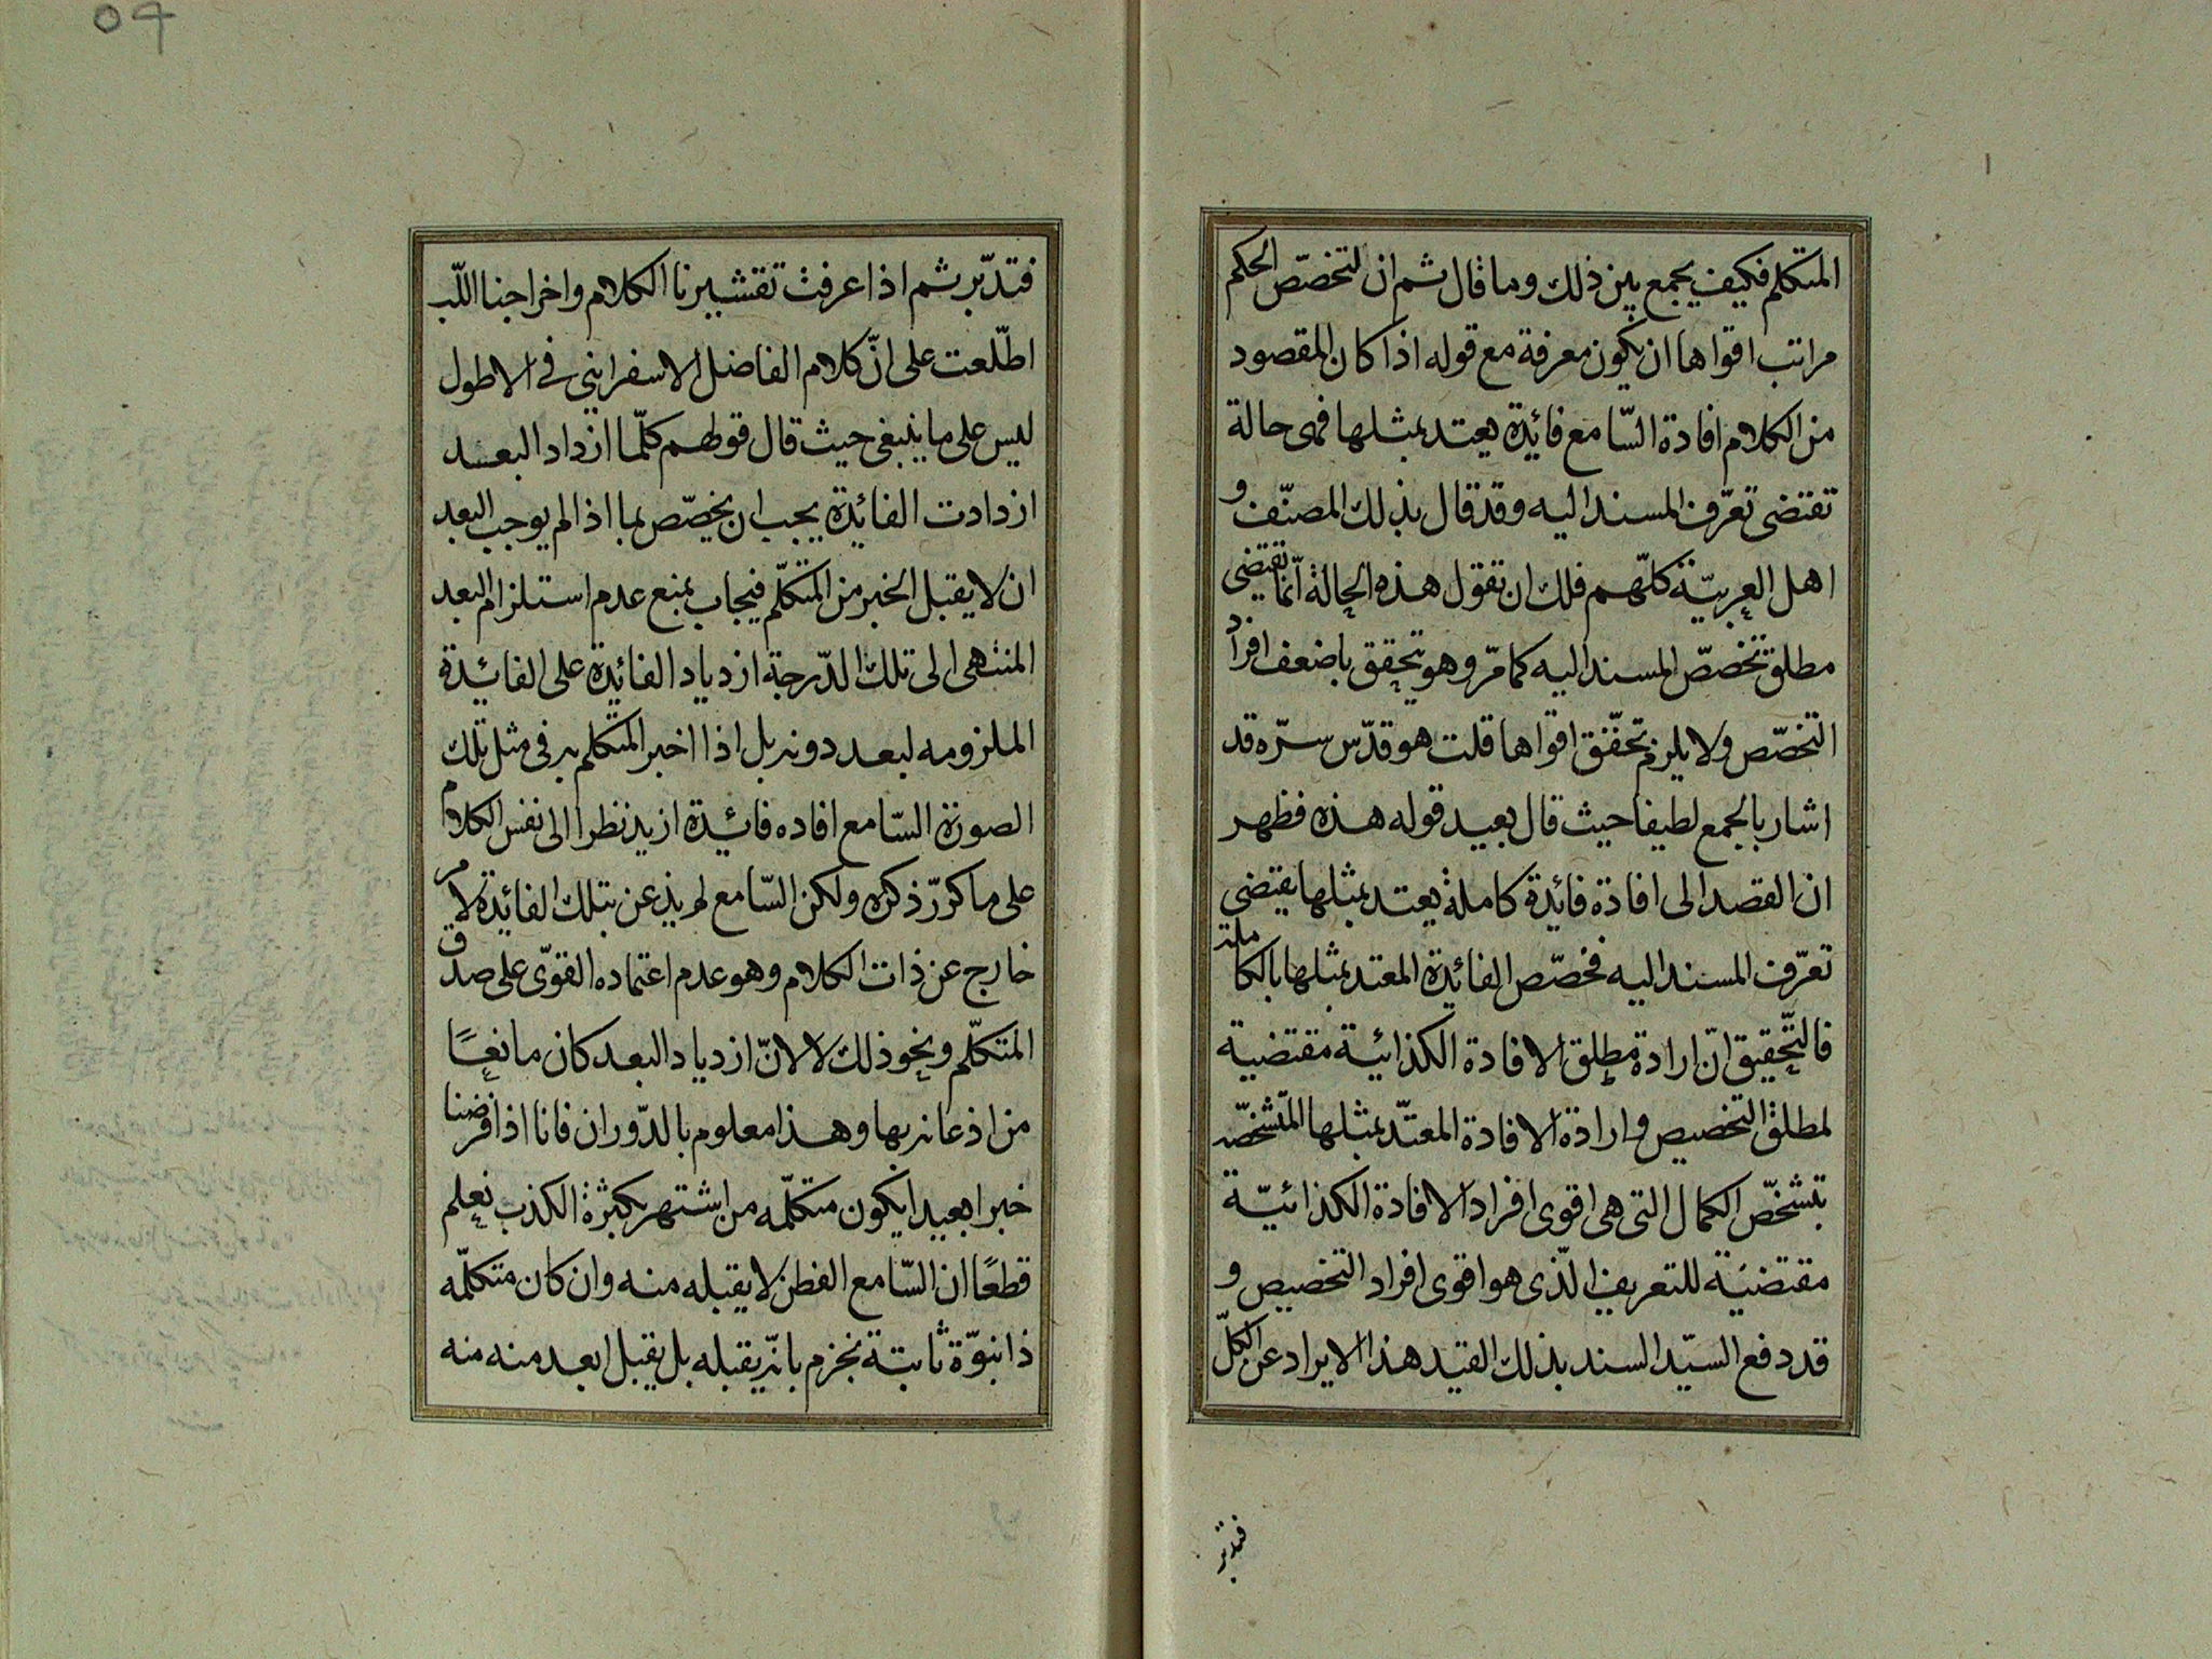 المتكلم فكيف يجمع بين ذلك وما قال ثم ان لتخصّص الحكم
مراتب اقواها ان يكون معرفة مع قوله اذا كان المقصود
من الكلام افادة السّامع فائدة يعتد بمثلها فهى حالة
تقتضى تعرّف المسند اليه وقد قال بذلك المصنّف و
اهل العربيّة كلّهم فلك ان تقول هذه الحالة انّما تقتضى
مطلق تخصّص المسند اليه كما مرّ وهو يتحقق باضعف افراد
التخصّص ولا يلزم تحقّق اقواها قلت هو قدّس سرّه قد
اشار بالجمع لطيفا حيث قال بعيد قوله هذه فظهر
ان القصد الى افادة فائدة كاملة يعتد بمثلها يقتضى
تعرّف المسند اليه فخصّص الفائدة المعتد بمثلها بالكاملة
فالتّحقيق انّ ارادة مطلق الافادة الكذائية مقتضية
لمطلق التخصيص وارادة الافادة المعتدّ بمثلها المتشخّصة
بتشخّص الكمال التى هى اقوى افراد الافادة الكذائيّة
مقتضيّة للتعريف الّذى هو اقوى افراد التخصيص و
قد دفع السيّد السند بذلك القيد هذا الايراد عن الكلّ
فتدبر
فتدبّر ثم اذا عرفت تقشيرنا الكلام واخراجنا اللّب
اطّلعت على انّ كلام الفاضل الاسفراينى فى الاطول
ليس على ما ينبغى حيث قال قولهم كلّما ازداد البعد
ازدادت الفائدة يجب ان يخصّص بما اذا لم يوجب البعد
ان لا يقبل الخبر من المتكلّم فيجاب بمنع عدم استلزام البعد
المنتهى الى تلك الدّرجة ازدياد الفائدة على الفائدة
الملزومه لبعد دونه بل اذا اخبر المتكلم به فى مثل تلك
الصورة السّامع افاده فائدة ازيد نظرا الى نفس الكلام
على ما كرّر ذكره ولكن السّامع لم يذعن بتلك الفائدة لامر
خارج عن ذات الكلام وهو عدم اعتماده القوّى على صدق
المتكلّم ونحو ذلك لا لانّ ازدياد البعد كان مانعًا
من اذعانه بها وهذا معلوم بالدّوران فانا اذا فرضنا
خبرا بعيدا يكون متكلّمه من اشتهر بكثرة الكذب نعلم
قطعًا ان السّامع الفطن لا يقبله منه وان كان متكلّمه
ذا نبوّة ثابتة نجزم بانّه يقبله بل يقبل ابعد منه منه